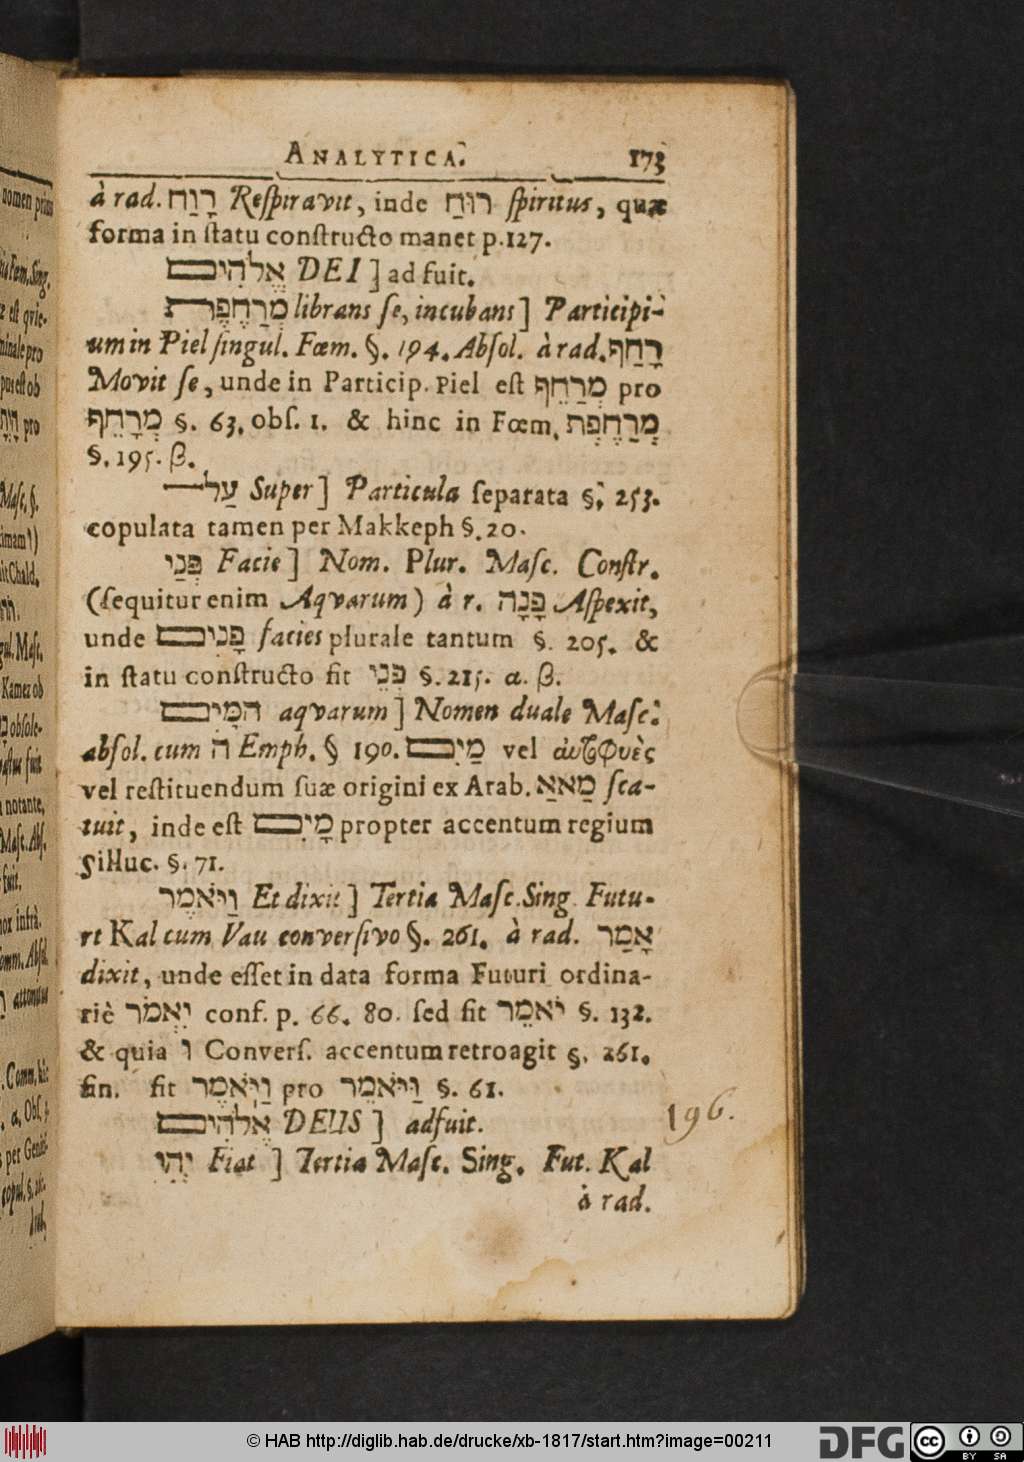 ANALYTICA. 173
à rad. רָוַח Reſpiravit, inde רוּחַ ſpiritus, quæ
forma in ſtatu conſtructo manet p.127.
אֱלֹהִים DEI ] ad fuit.
מְרַחֶפֶת librans ſe, incubans] Participi-
um in Piel ſingul. Fœm. §. 194. Abſol. à rad. רָחַף
Movit ſe, unde in Particip. Piel eſt מְרַחֵף pro
מְרָחֵף §. 63. obſ. 1. & hinc in Fœm. מְרַחֶפְתְּ
§. 195. β.
עַל Super] Particula ſeparata §. 253.
copulata tamen per Makkeph §. 20.
פְּנַי Facie] Nom. Plur. Maſc. Conſtr.
(ſequitur enim Aqvarum) à r. פָּנָה Aſpexit,
unde פָּנִים facies plurale tantum §. 205. &
in ſtatu conſtructo fit פְּנֵי §. 215. α. β.
הַמַּיִם aqvarum] Nomen duale Maſc.
abſol. cum ה Emph. § 190. מַיִם vel αὐτοφυὲς
vel reſtituendum ſuæ origini ex Arab. מַאאַ ſca-
tuit, inde eſt מָיִם propter accentum regium
Silluc. §. 71.
וַיֹּאמֶר Et dixit] Tertia Maſc. Sing. Futu-
ri Kal cum Vau converſivo §. 261. à rad. אָמַר
dixit, unde eſſet in data forma Futuri ordina-
riè יִאְמֹר conf. p. 66. 80. ſed fit יֹאמֵר §. 132.
& quia ו Converſ. accentum retroagit §. 261.
fin. fit וַיֹּאמֶר pro וַיֹּאמֵר §. 61.
אֱלֹהִים DEUS ] adfuit.
196.
יְהִי Fiat ] Tertia Maſc. Sing. Fut. Kal
à rad.
nomen
Fœm. Sing.
pro
pro
Maſc. §.
Chald.
Maſc.
Kamez ob
obſole-
fuit
notante,
Maſc. Abſ.
fuit.
infrà.
Comm. Abſ.
Comm.
per
© HAB http://diglib.hab.de/drucke/xb-1817/start.htm?image=00211
DFG
cc BY SA